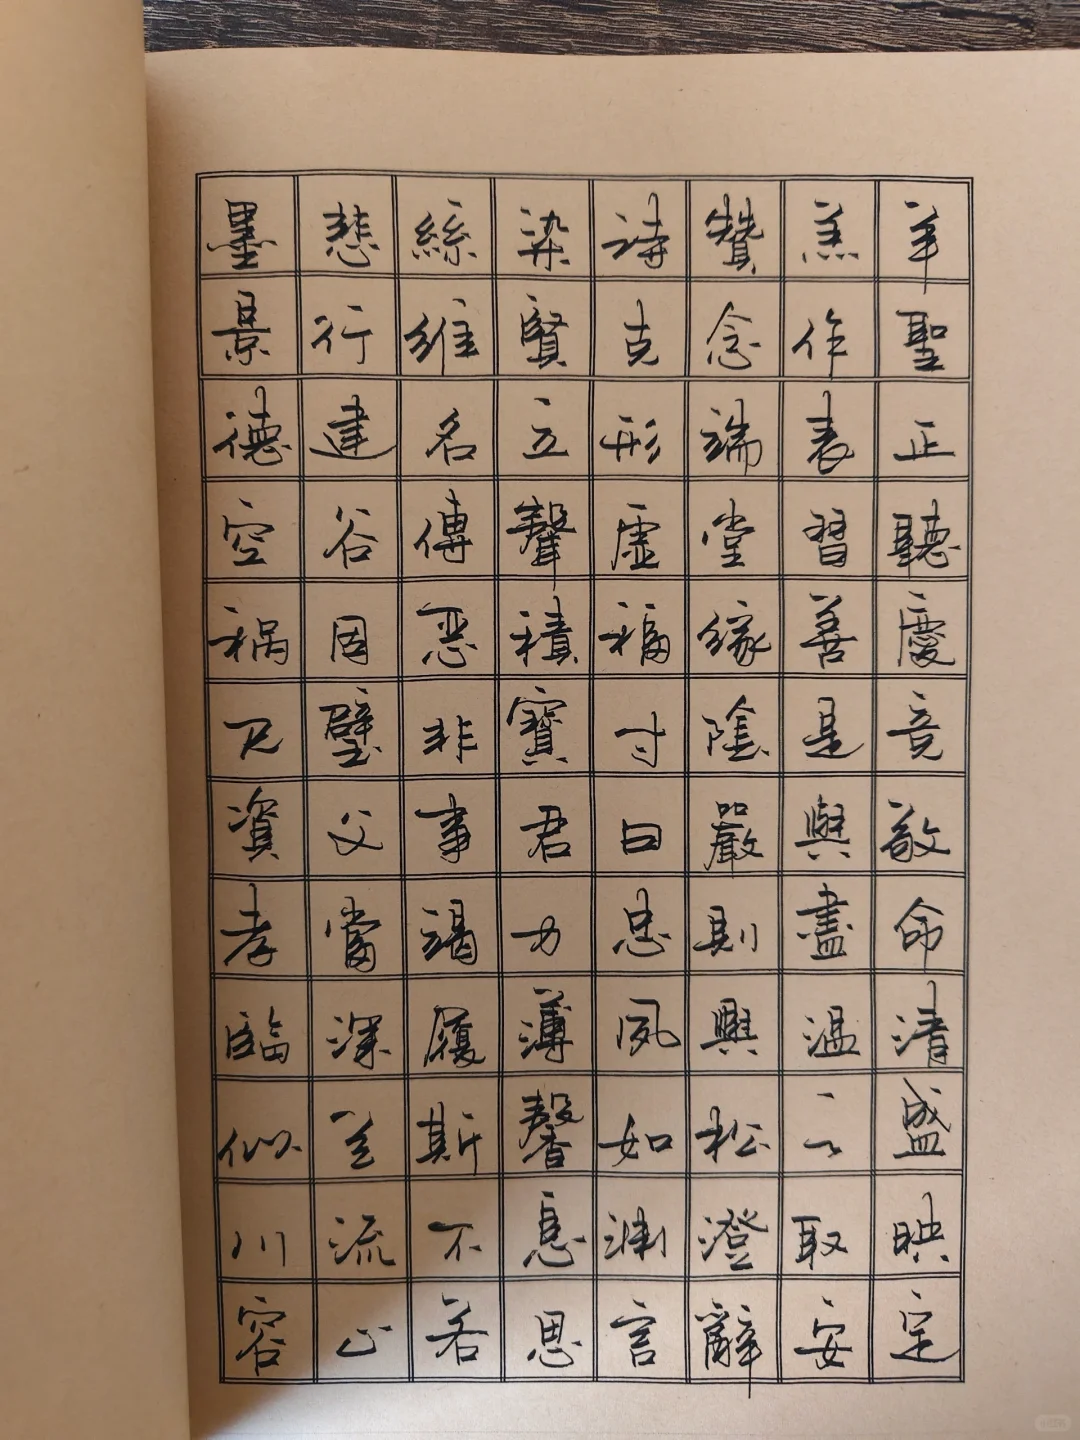 墨悲絲染詩贊羔羊
景行維賢克念作聖
德建名立形端表正
空谷傳聲虛堂習聽
禍因惡積福緣善慶
尺璧非寶寸陰是竟
資父事君曰嚴與敬
孝當竭力忠則盡命
臨深履薄夙興溫清
似兰斯馨如松之盛
川流不息淵澄取映
容止若思言辭安定